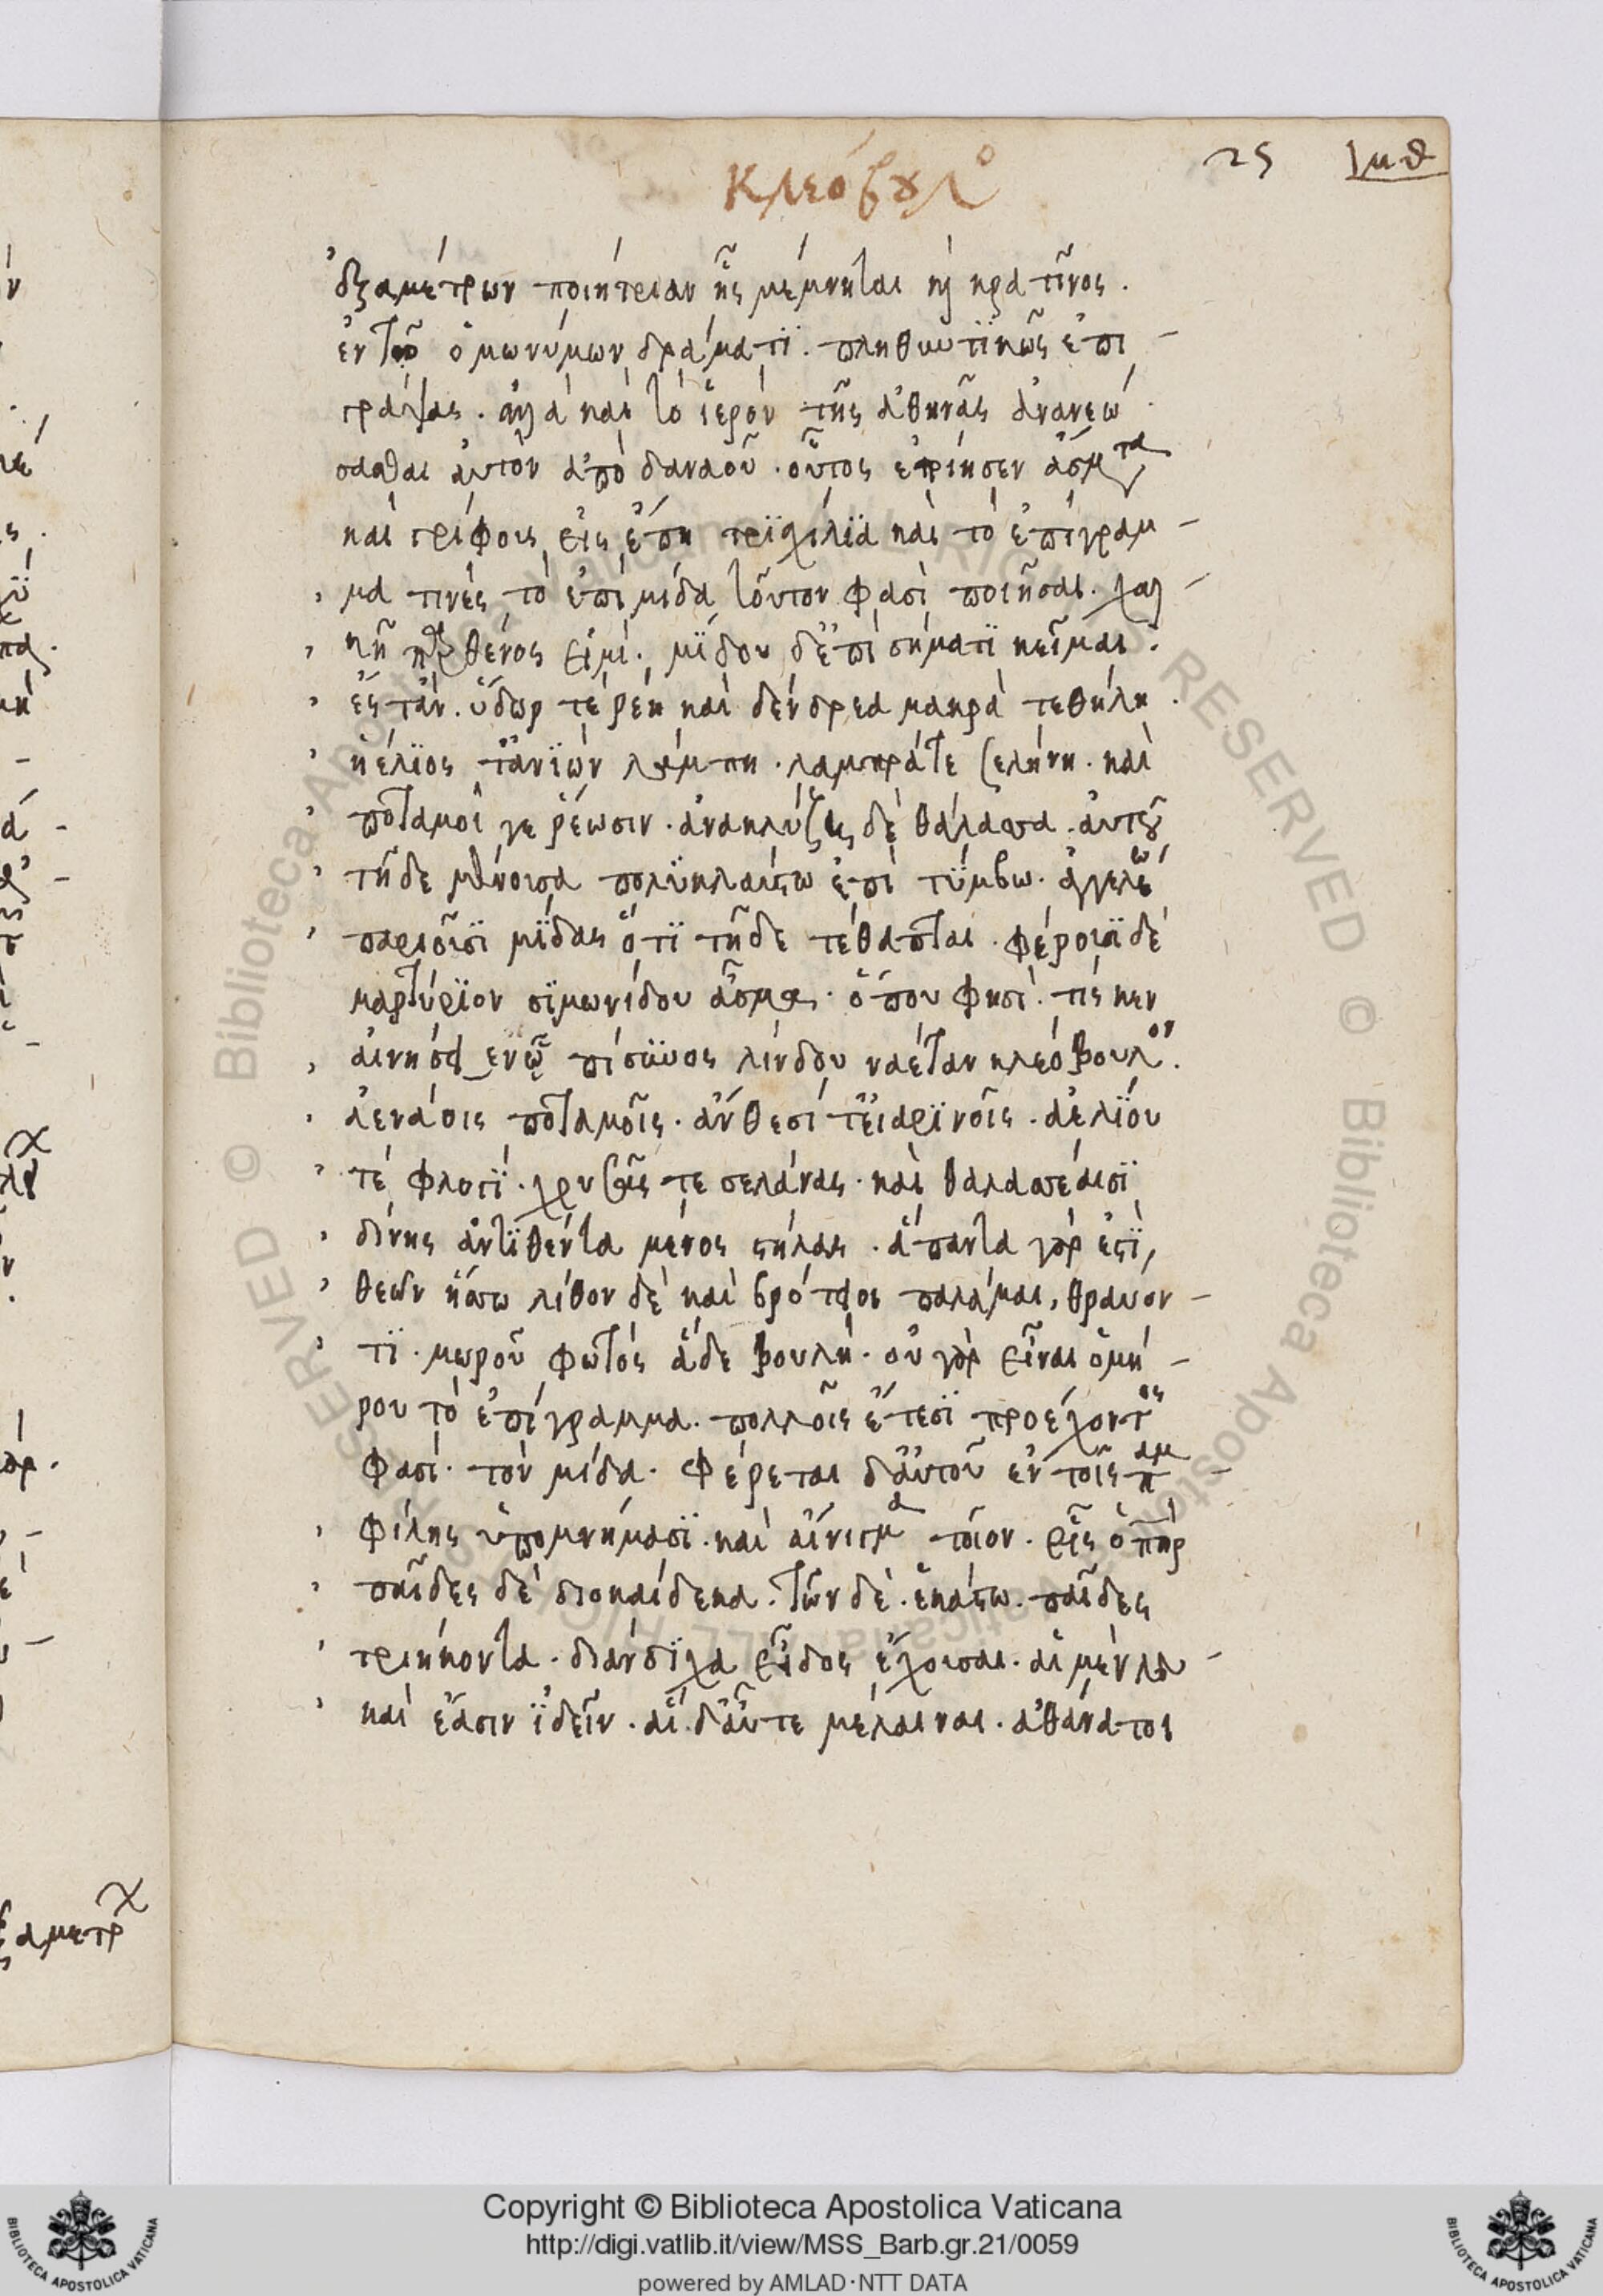 Κλεόβουλος
25 μθ
ἑξαμέτρων ποιήτριαν ἧς μέμνηται κ κρατῖνος.
ἐν τῷ ὁμωνύμων δράματϊ. πληθυντϊκῶς ἐπι-
γράψας. ἀλλὰ καὶ τὸ ἱερὸν τῆς ἀθηνᾶς ἀνανεώ
σασθαι ἀυτὸν ἀπὸ δαναοῦ. οὗτος ἐποίησεν ἄσματα
καὶ γρίφους εἰς ἔπη τρϊχίλϊα καὶ τὸ ἐπίγραμ-
μα τινὲς τὸ ἐπὶ μίδα τοῦτον φασὶ ποιῆσαι. χαλ-
κῆ παρθένος εἰμὶ. μΐδου δἐπὶ σήματϊ κεῖμαι.
ἔς τἀν. ὕδωρ τὲ ρέη καὶ δένδρεα μακρὰ τεθήλη.
ἠέλϊος τἀνϊὼν λάμπη. λαμπράτε σελήνη. καὶ
ποταμοὶ γε ῥέωσιν. ἀνακλύζῃ δὲ θάλασσα. ἀυτοῦ
τῆδε μένουσα πολϋκλαύστω ἐπὶ τΰμβω. ἀγγελέω
παριοῦσϊ μΐδας ὅτϊ τῆδε τέθαπται. φέρουσϊ δὲ
μαρτύρϊον σϊμωνίδου ἆσμα. ὅπου φησὶ. τίς κεν
αἰνήσ ενῷ πίσϋνος λίνδου ναέταν κλεόβουλον.
ἀενάοις ποταμοῖς. ἄνθεσί τἐιαρϊνοῖς. ἀελΐου
τὲ φλογΐ. χρυσῆς τε σελάνας. καὶ θαλασσέαισϊ
δίνης ἀντϊθέντα μένος στήλας. ἅπαντα γὰρ ἐστΐ,
θεῶν ἥσσω λίθον δὲ καὶ βρότεοι παλάμαι, θραύον-
τϊ. μωροῦ φωτὸς ἅδε βουλή. οὐ γὰρ εἶναι ὁμή-
ρου τὸ ἐπίγραμμα. πολλοῖς ἔτεσϊ προέχοντος
φασὶ. τὸν μίδα. φέρεται δἀυτοῦ ἐν τοῖς παμ-
φίλης ὑπομνήμασϊ. καὶ αἴνιγμα τοῖον. εἷς ὁ πὴρ
παῖδες δὲ διοκαίδεκα. τῶν δὲ. ἑκάστω. παῖδες
τριήκοντα. διάνδϊχα εἶδος ἔχουσαι. αἱ μὲν λευ-
καὶ ἔασιν ἰδεῖν. αἱ δἆυτε μέλαιναι. ἀθάνατοι
Copyright © Biblioteca Apostolica Vaticana
http://digi.vatlib.it/view/MSS_Barb.gr.21/0059
powered by AMLAD·NTT DATA